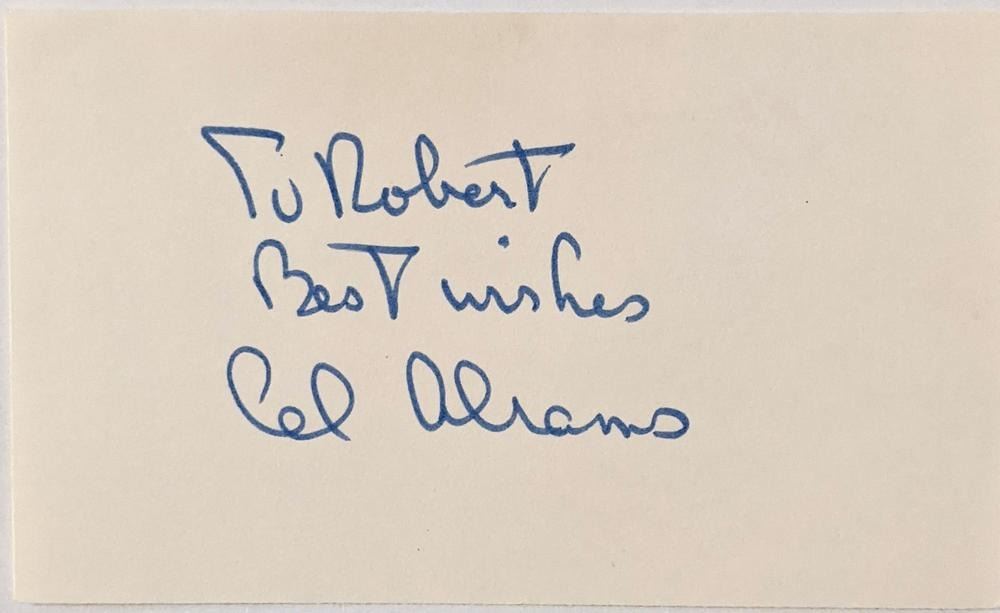 To Robert
Best wishes
Cal Abrams